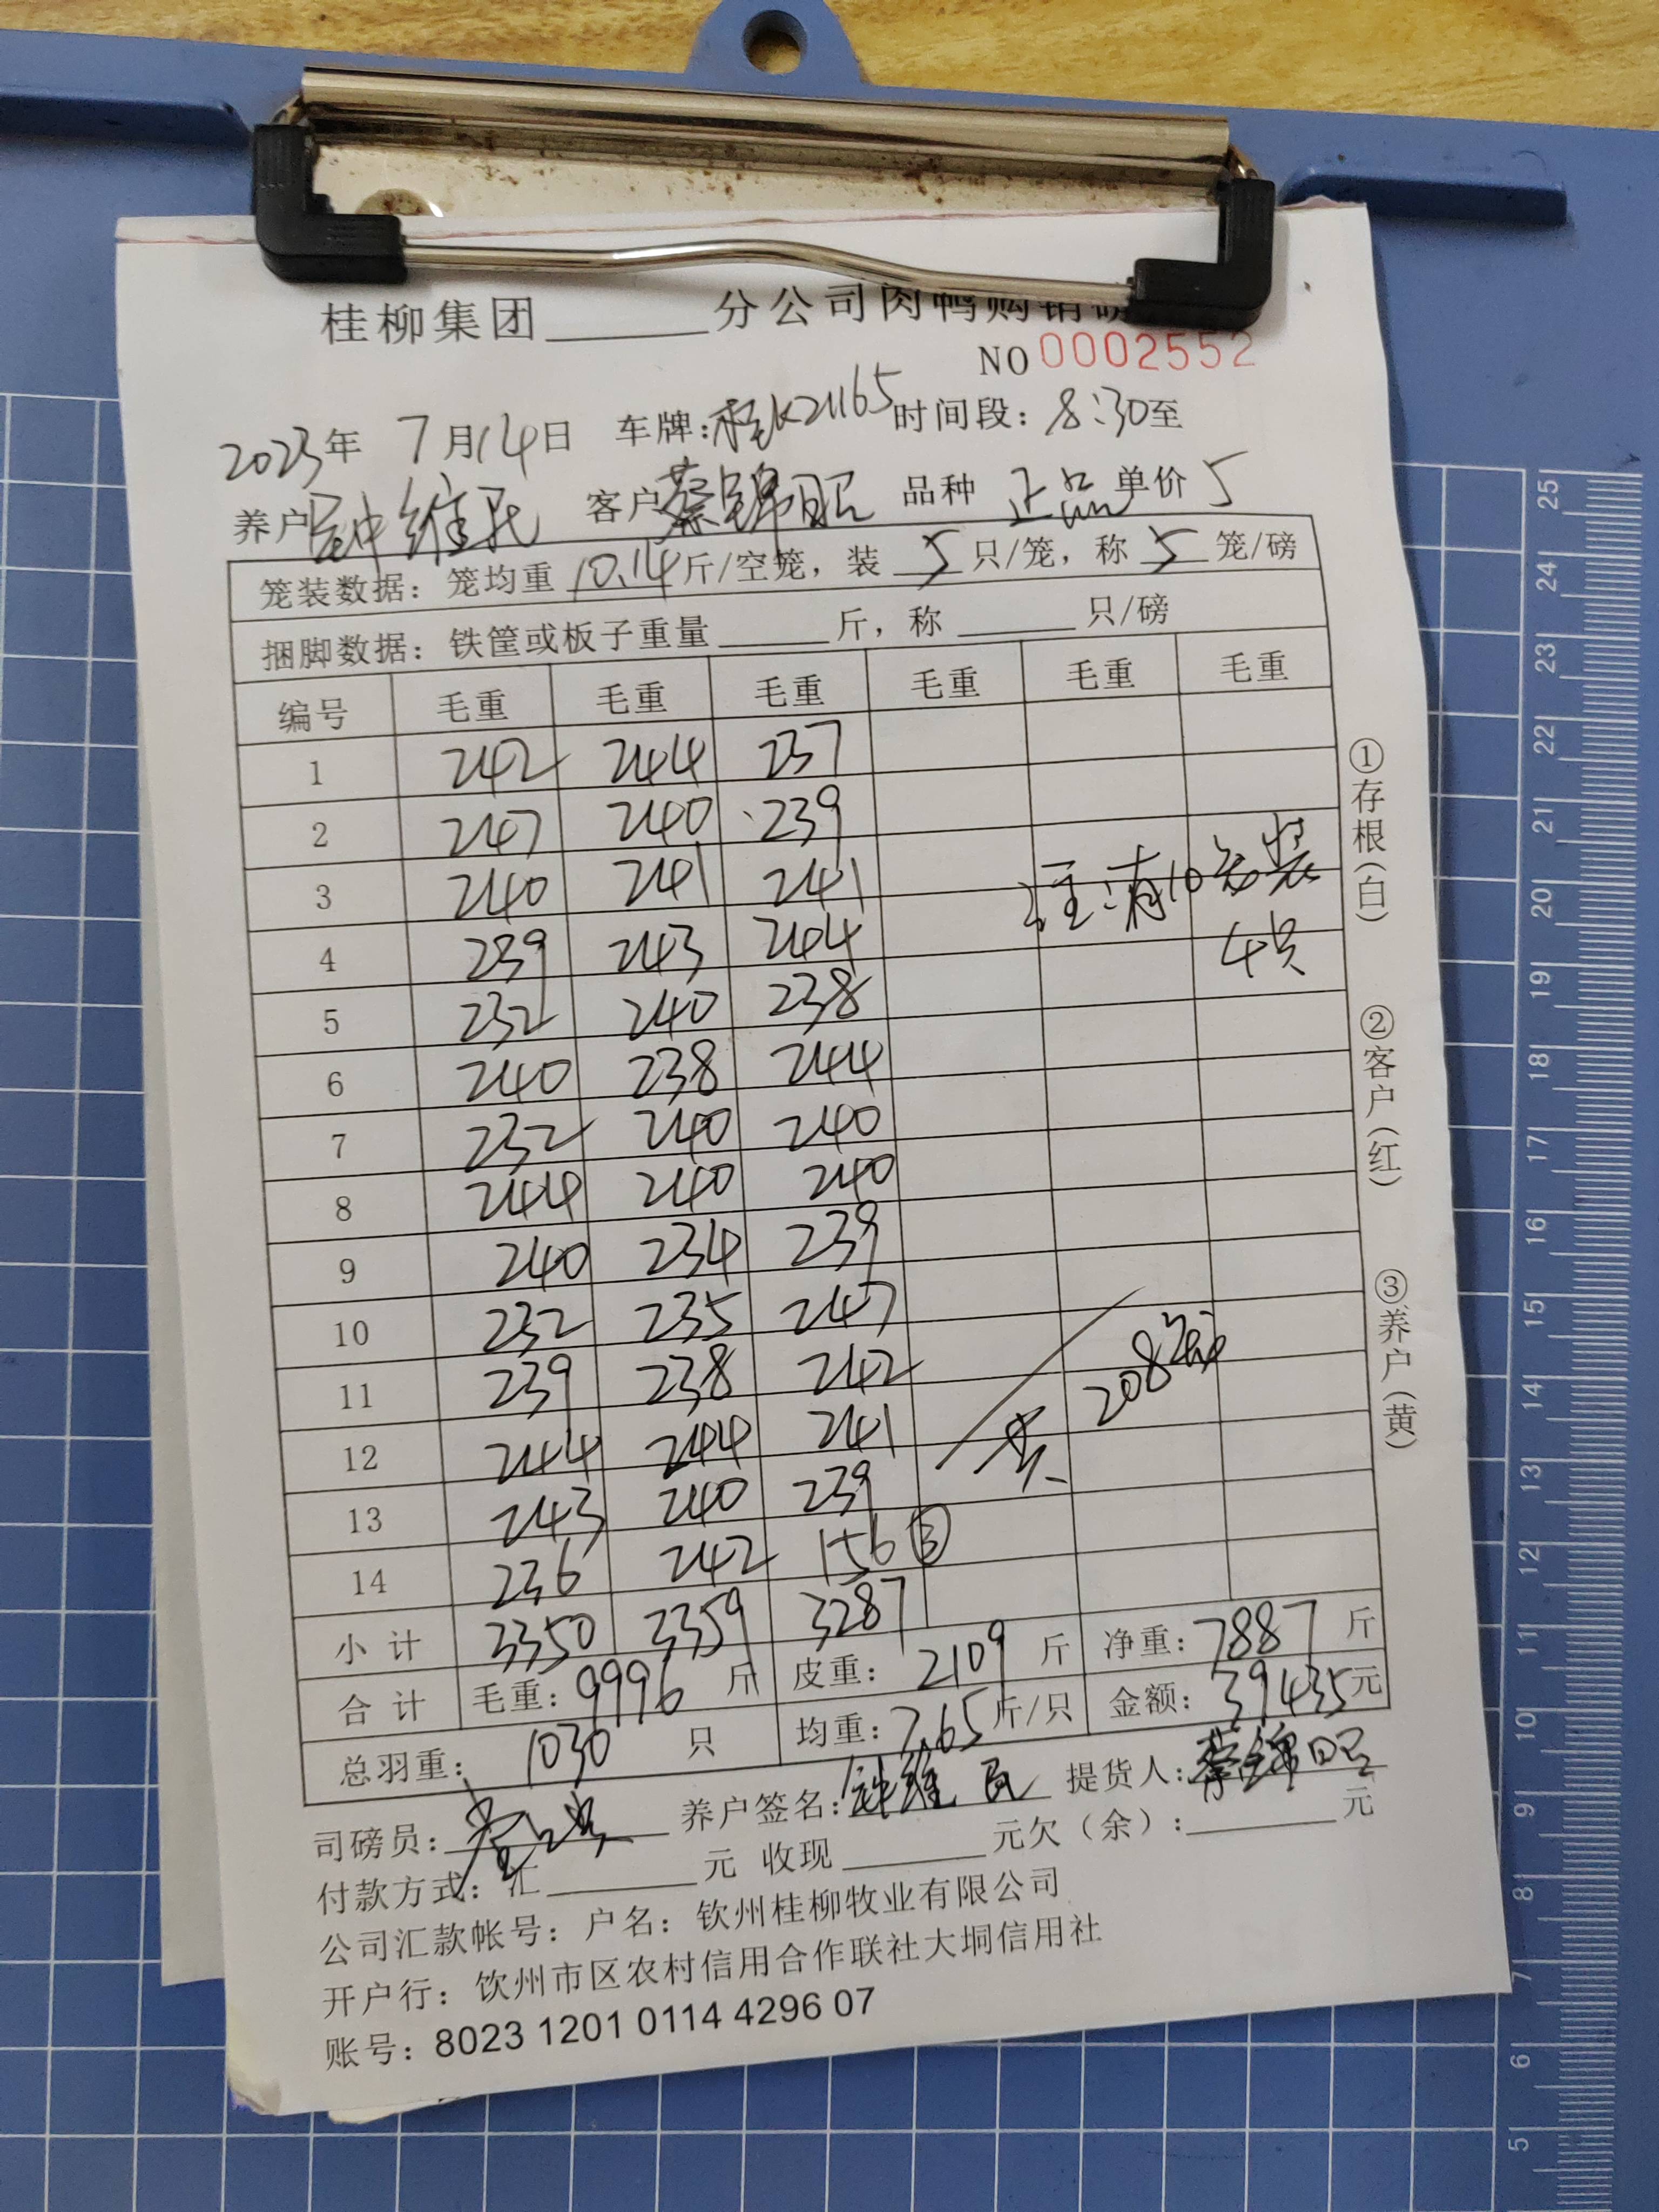 桂柳集团______分公司肉鸭购销磅
NO 0002552
2023年 7月14日 车牌:桂K21165 时间段: 8:30至
养户 钟维民 客户 蔡锦昭 品种 正品 单价 5
笼装数据: 笼均重 10.14 斤/空笼, 装 5 只/笼, 称 5 笼/磅
捆脚数据: 铁筐或板子重量______斤, 称______只/磅
编号 毛重 毛重 毛重 毛重 毛重 毛重
1 242 244 237
2 247 240 239
3 240 241 241
注:有10笼装
4只
4 239 243 244
5 232 240 238
6 240 238 244
7 232 240 240
8 244 240 240
9 240 234 239
10 232 235 247
11 239 238 242
共 208笼
12 244 244 241
13 243 240 239
14 236 242 156 ③
小计 3350 3359 3287
合计 毛重: 9996 斤 皮重: 2109 斤 净重: 7887 斤
总羽重: 1030 只 均重: 7.65 斤/只 金额: 39435 元
司磅员: 养户签名: 钟维民 提货人: 蔡锦昭
付款方式: 汇______元 收现______元欠(余):______元
公司汇款帐号: 户名: 钦州桂柳牧业有限公司
开户行: 钦州市区农村信用合作联社大垌信用社
账号: 8023 1201 0114 4296 07
①存根(白) ②客户(红) ③养户(黄)
25
24
23
22
21
20
19
18
17
16
15
14
13
12
11
10
9
8
7
6
5